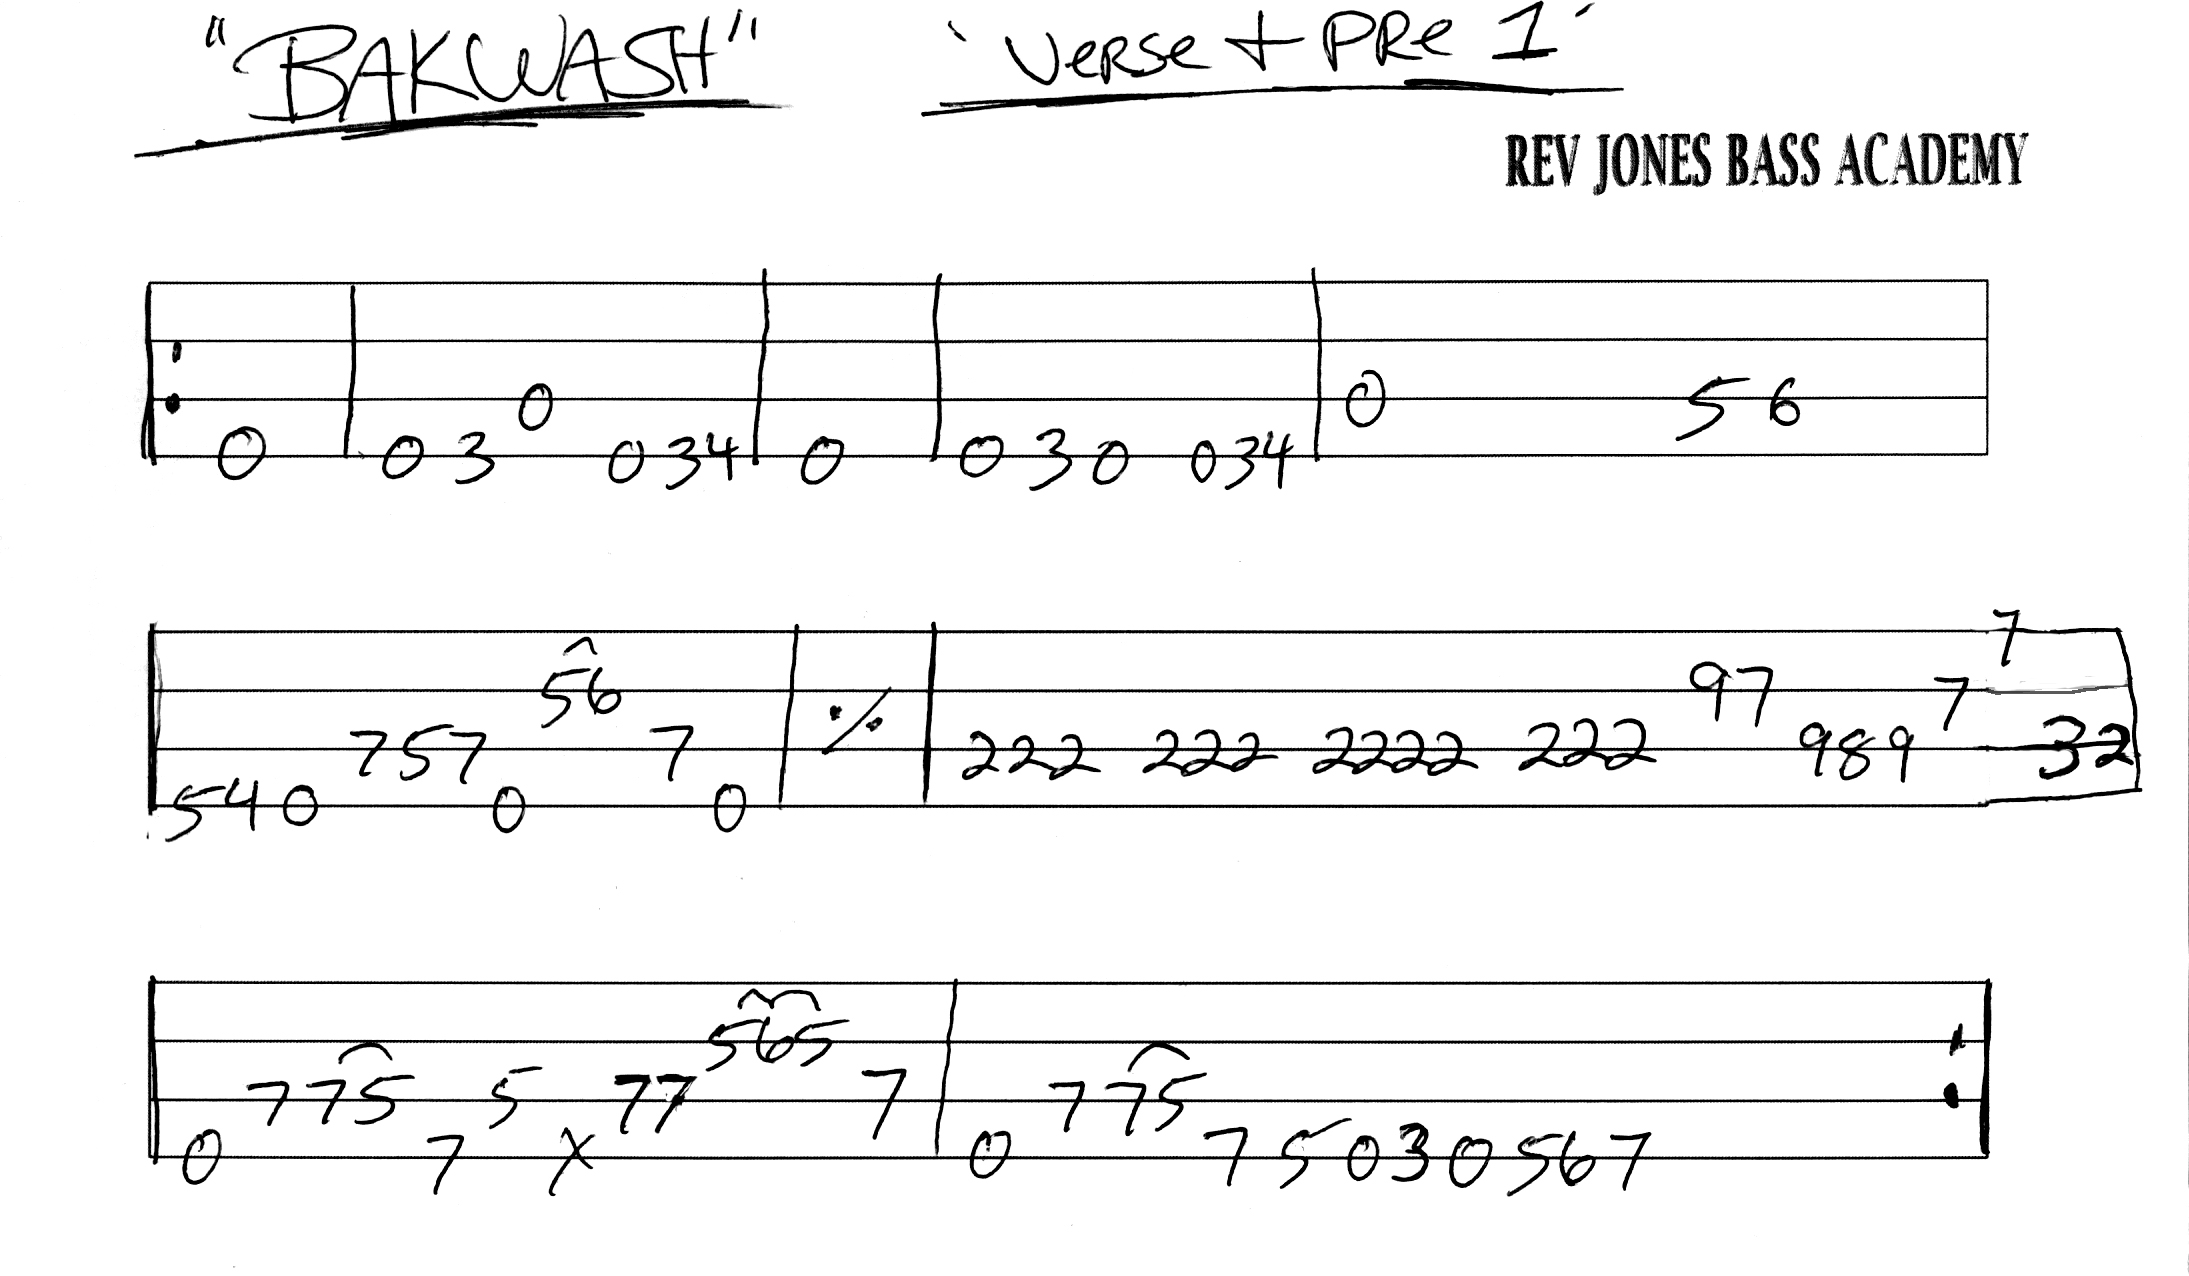 "BAKWASH" 'Verse + PRe 1'
REV JONES BASS ACADEMY
0 0 3 0 0 3 4 0 0 3 0 0 3 4 0 5 6
5 4 0 7 5 7 0 5 6 7 0 ٪ 2 2 2 2 2 2 2 2 2 2 2 2 2 9 7 9 8 9 7 7 3 2
0 7 7 5 7 5 X 7 7 5 6 5 7 0 7 7 5 7 5 0 3 0 5 6 7